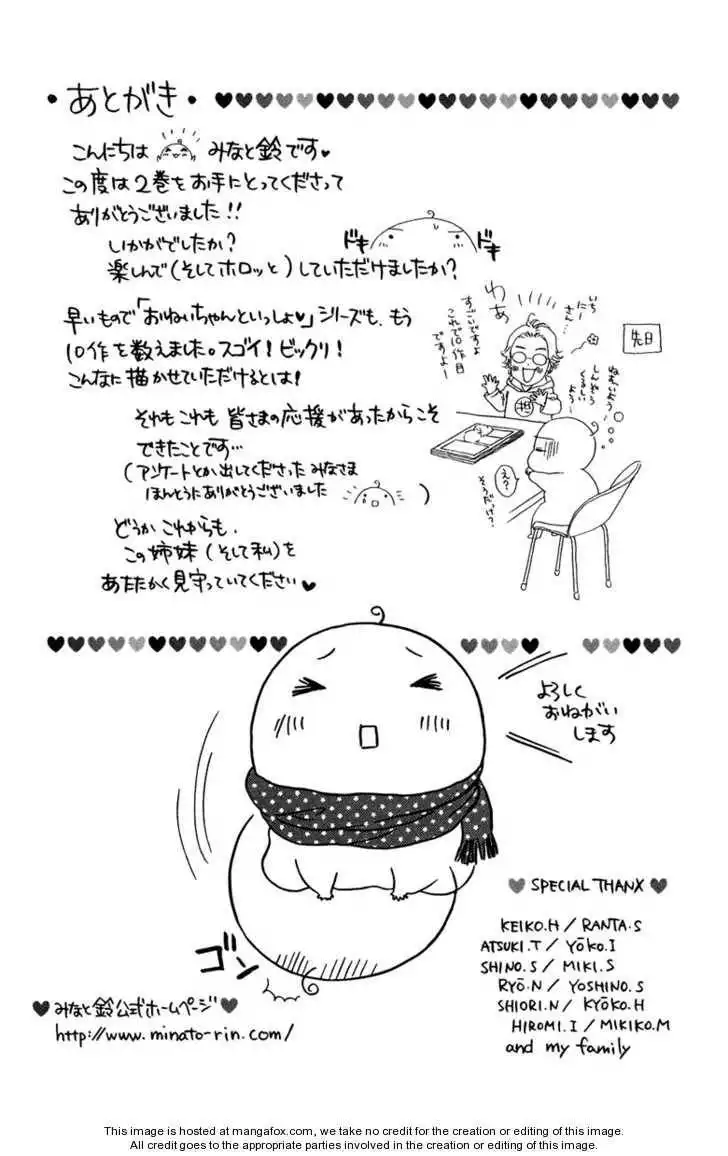 ・あとがき・
こんにちは みなと鈴です♥
この度は2巻をお手にとってくださって
ありがとうございました!!
いかがでしたか?
ドキ ドキ
楽しんで(そしてホロッと)していただけましたか?
早いもので「おねいちゃんといっしょ♥」シリーズも、もう
10作を数えました。スゴイ!ビックリ!
こんなに描かせていただけるとは!
それもこれも 皆さまの応援があったからこそ
できたことです…
(アンケートとか出してくださった みなさま
ほんとうにありがとうございました )
どうか これからも、
この姉妹(そして私)を
あたたかく見守っていてください♥
先日
わぁ
すごいですよ
これで10作目
ですよー
担
え?
そうだっけ?
よろしく
おねがい
します
ゴン
♥ SPECIAL THANX ♥
KEIKO.H / RANTA.S
ATSUKI.T / YŌKO.I
SHINO.S / MIKI.S
RYŌ.N / YOSHINO.S
SHIORI.N / KYŌKO.H
HIROMI.I / MIKIKO.M
and my family
♥みなと鈴公式ホームページ♥
http://www.minato-rin.com/
This image is hosted at mangafox.com, we take no credit for the creation or editing of this image.
All credit goes to the appropriate parties involved in the creation or editing of this image.